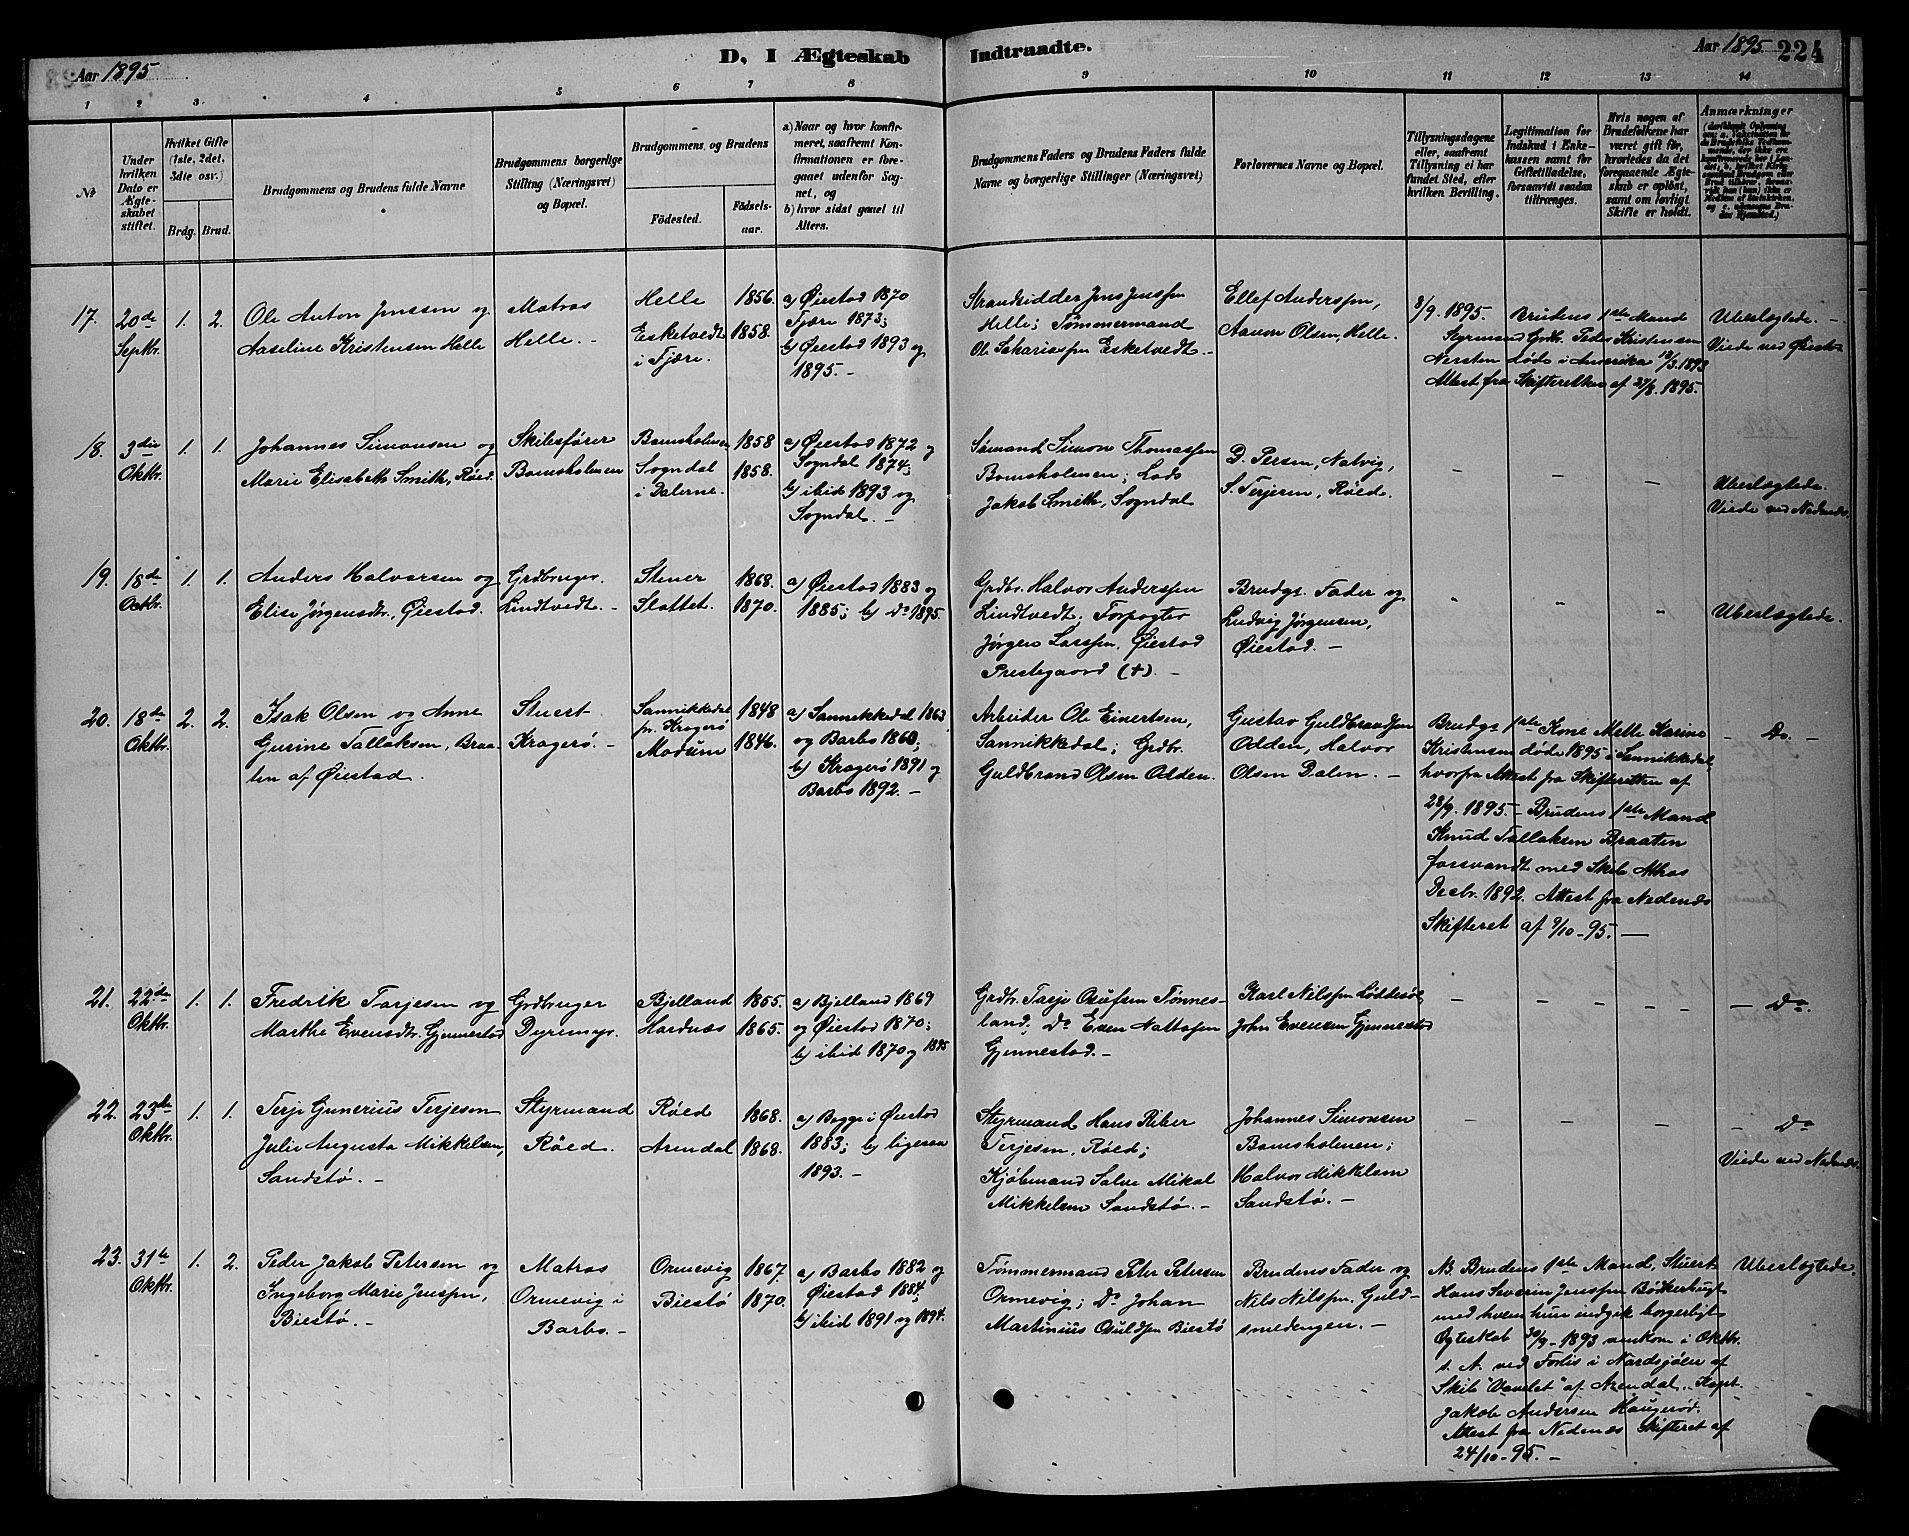 Aar 1895
D, I Ægteskab Indtraadte.
Aar 1895 224
1 2 3 4 5 6 7 8 9 10 11 12 13 14
No
Under hvilken Dato er Ægteskabet stiftet.
Hvilket Gifte (1ste, 2det, 3die osv.)
Brdg. Brud.
Brudgommens og Brudens fulde Navne
Brudgommens borgerlige Stilling (Næringsvei) og Bopæl.
Brudgommens og Brudens
Fødested. Fødselsaar.
a) Naar og hvor konfirmeret, saafremt Konfirmationen er foregaaet udenfor Sognet, og
b) hvor sidst gaaet til Alters.
Brudgommens Faders og Brudens Faders fulde Navne og borgerlige Stillinger (Næringsvei)
Forlovernes Navne og Bopæl.
Tillysningsdagene eller, saafremt Tillysning ei har fundet Sted, efter hvilken Bevilling.
Legitimation for Indskud i Enkekassen samt for Giftetilladelse, forsaavidt saadan tiltrænges.
Hvis nogen af Brudefolkene har været gift før, hvorledes da det foregaaende Ægteskab er opløst, samt om lovligt Skifte er holdt.
Anmærkninger
17. 20de Septbr. 1. 2.
Ole Anton Jenssen og
Aaseline Kristensen Helle
Matros
Helle. –
Helle 1856.
Esketvedt i Fjære. 1858.
a) Øiestad 1870
Fjære 1873;
b) Øiestad 1893 og
1895. –
Strandsidder Jens Jenssen
Helle; Tømmermand
Ole Sakariassen Esketvedt –
Ellef Anderssen,
Aanon Olsen, Helle.
8/9. 1895. Brudens 1ste Mand
Styrmand Grdbr. Peder Kristensen
Nersten døde i Amerika 12/3. 1893
Attest fra Skifteretten af 27/8. 1895.
Ubeslægtede. –
Viede ved Øiestad
18. 3die Oktbr. 1. 1.
Johannes Simonsen og
Marie Elisabeth Smith, Røed.
Skibsfører
Bomsholmen
Bomsholmen 1858
Sogndal i Dalerne. 1858.
a) Øiestad 1872 og
Sogndal 1874;
b) ibid 1893 og
Sogndal. –
Sømand Simon Thomassen
Bomsholmen; Lods
Jakob Smith, Sogndal
D. Persen, Natvig,
S. Terjesen, Røed.
– – –
Ubeslægtede.
Viede ved Nedenæs.
19. 18de Octbr. 1. 1.
Anders Halvorsen og
Elise Jørgensdtr. Øiestad.
Grdbruger.
Lindtvedt. –
Stener 1868.
Slottet. 1870.
a) Øiestad 1883 og
1885; b) Do 1895.
Grdbr. Halvor Anderssen
Lindtvedt; Forpagter
Jørgen Larssen, Øiestad
Prestegaard (+). –
Brudgs. Fader og
Ludvig Jørgensen,
Øiestad. –
" " "
Ubeslægtede.
20. 18de Oktbr. 2. 2.
Isak Olsen og Anne
Gurine Tallaksen, Braaten af Øiestad.
Stuert
Kragerø. –
Sannikkedal pr. Kragerø 1848
Modum 1846.
a) Sannikkedal 1863
og Barbo 1860;
b) Kragerø 1891 og
Barbo 1892. –
Arbeider Ole Einertsen,
Sannikkedal; Grdbr.
Guldbrand Olsen Odden.
Gustav Guldbrandsen
Odden, Halvor
Olsen Dalen. –
Brudgs 1ste Kone Mette Karine
Kristensen døde 1895 i Sannikkedal,
hvorfra Attest fra Skifteretten af
28/9. 1895. – Brudens 1ste Mand
Knud Tallaksen Braaten
forsvandt med Skib Athos
Decbr. 1892. Attest fra Nedenæs
Skifteret af 9/10–95. –
– Do. –
21. 22de Oktbr. 1. 1.
Fredrik Tarjesen og
Marthe Evensdtr. Gjennestad
Grdbruger
Dyremyr.
Bjelland 1855.
Hordnæs 1865.
a) Bjelland 1869
og Øiestad 1870;
b) ibid 1870 og 1895
Grdbr. Tarje Osufsen Tønnesland; Do Even Nattesen
Gjennestad. –
Karl Nilssen Løddesøl,
John Evensen Gjennestad
– – –
– Do.
22. 23de Oktbr. 1. 1.
Terje Gunerius Terjesen
Julie Augusta Mikkelsen,
Sandstø. –
Styrmand
Røed.
Røed 1868.
Arendal 1868.
a) Begge i Øiestad
1883; b) ligesaa
1893. –
Styrmand Hans Riber
Terjesen, Røed;
Kjøbmand Salve Mikal
Mikkelsen Sandstø. –
Johannes Simonsen
Bomsholmen;
Halvor Mikkelsen
Sandstø. –
– – –
– Do
Viede ved Nedenæs.
23. 31te Oktbr. 1. 2.
Peder Jakob Petersen og
Ingeborg Marie Jenssen,
Biestø. –
Matros
Ormevig i
Barbo. –
Ormevig 1867.
Biestø 1870.
a) Barbo 1882 og
Øiestad 1884;
b) ibid 1891 og 1894.
Tømmermand Peter Petersen
Ormevig; Do Johan
Martinius Osuldsen Biestø
Brudens Fader og
Nils Nilssen, Guldsmedengen. –
N. Brudens 1ste Mand, Stuert
Hans Severin Jenssen Bökkerhugt
med hvem hun indgik borgerligt
Ægteskab 30/9–1893 omkom i Oktbr.
s. A. ved Forlis i Nordsjøen af
Skib "Vavelet" af Arendal, Kapt.
Jakob Andersen Haugerød.
Attest fra Nedenæs Skifteret af
24/10–95. –
Ubeslægtede.